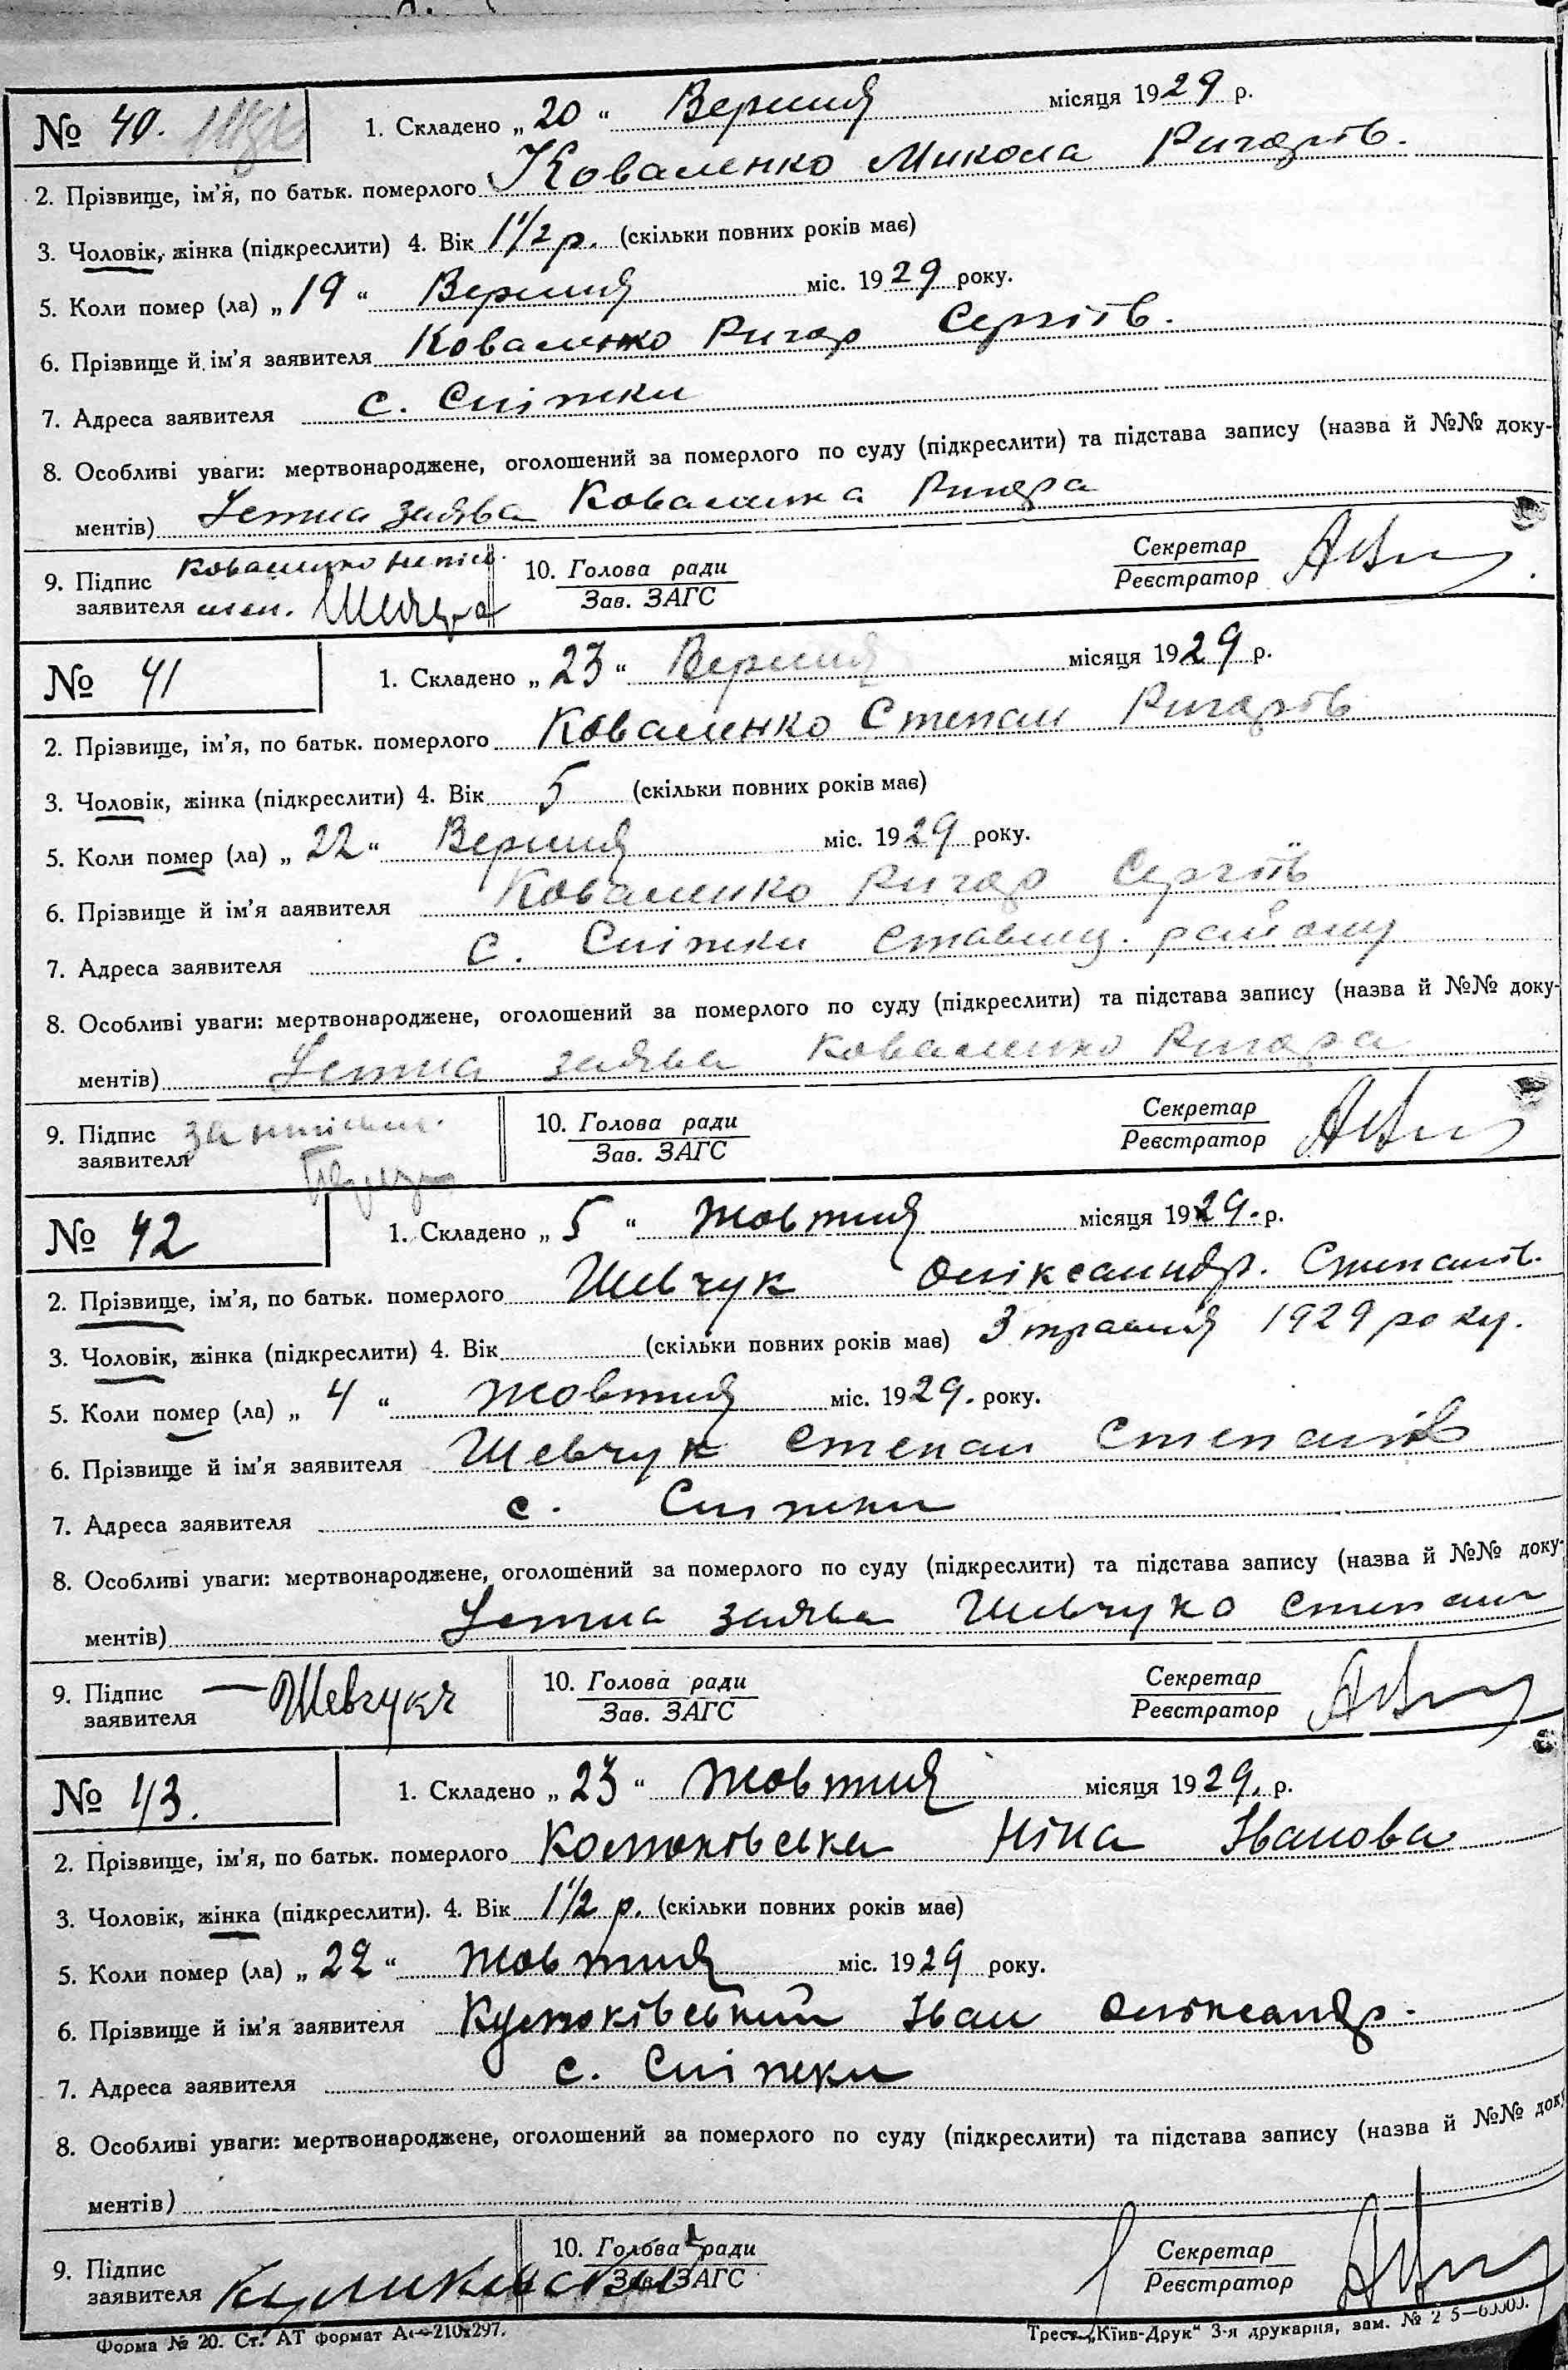 № 40.
1. Складено „20“ Вересня місяця 1929 р.
2. Прізвище, ім’я, по батьк. померлого Коваленко Микола Ригорів.
3. Чоловік, жінка (підкреслити) 4. Вік 1 1/2 р. (скільки повних років має)
5. Коли помер (ла) „19“ Вересня міс. 1929 року.
6. Прізвище й ім’я заявителя Коваленко Ригор Сергіїв.
7. Адреса заявителя с. Сніжки
8. Особливі уваги: мертвонароджене, оголошений за померлого по суду (підкреслити) та підстава запису (назва й №№ доку-
ментів) Устна заява Коваленка Ригора
9. Підпис Коваленко непис.
заявителя
10. Голова ради
Зав. ЗАГС
Секретар
Реєстратор
№ 41
1. Складено „23“ Вересня місяця 1929 р.
2. Прізвище, ім’я, по батьк. померлого Коваленко Степан Ригорів
3. Чоловік, жінка (підкреслити) 4. Вік 5 (скільки повних років має)
5. Коли помер (ла) „22“ Вересня міс. 1929 року.
6. Прізвище й ім’я ааявителя Коваленко Ригор Сергіїв
7. Адреса заявителя с. Сніжки Ставищ. району
8. Особливі уваги: мертвонароджене, оголошений за померлого по суду (підкреслити) та підстава запису (назва й №№ доку-
ментів) Устна заява Коваленко Ригора
9. Підпис за
заявителя
10. Голова ради
Зав. ЗАГС
Секретар
Реєстратор
№ 42
1. Складено „5“ жовтня місяця 1929. р.
2. Прізвище, ім’я, по батьк. померлого Шевчук Оліксандр. Степанів.
3. Чоловік, жінка (підкреслити) 4. Вік (скільки повних років має) 3 травня 1929 року.
5. Коли помер (ла) „4“ жовтня міс. 1929. року.
6. Прізвище й ім’я заявителя Шевчук Степан Степанів
7. Адреса заявителя с. Сніжки
8. Особливі уваги: мертвонароджене, оголошений за померлого по суду (підкреслити) та підстава запису (назва й №№ доку-
ментів) Устна заява Шевчука Степан
9. Підпис Шевчук
заявителя
10. Голова ради
Зав. ЗАГС
Секретар
Реєстратор
№ 43.
1. Складено „23“ жовтня місяця 1929. р.
2. Прізвище, ім’я, по батьк. померлого Ніна Іванова
3. Чоловік, жінка (підкреслити). 4. Вік 1 1/2 р. (скільки повних років має)
5. Коли помер (ла) „22“ жовтня міс. 1929 року.
6. Прізвище й ім’я заявителя Іван Олександр.
7. Адреса заявителя с. Сніжки
8. Особливі уваги: мертвонароджене, оголошений за померлого по суду (підкреслити) та підстава запису (назва й №№ доку
ментів)
9. Підпис
заявителя
10. Голова ради
Зав. ЗАГС
Секретар
Реєстратор
Форма № 20. Ст. АТ формат А₄—210х297.
Трест „Київ-Друк“ 3-я друкарня, зам. №